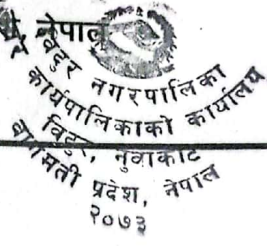 नेपाल
विदुर नगरपालिका
कार्यपालिकाको कार्यालय
विदुर, नुवाकोट
बागमती प्रदेश, नेपाल
२०७३